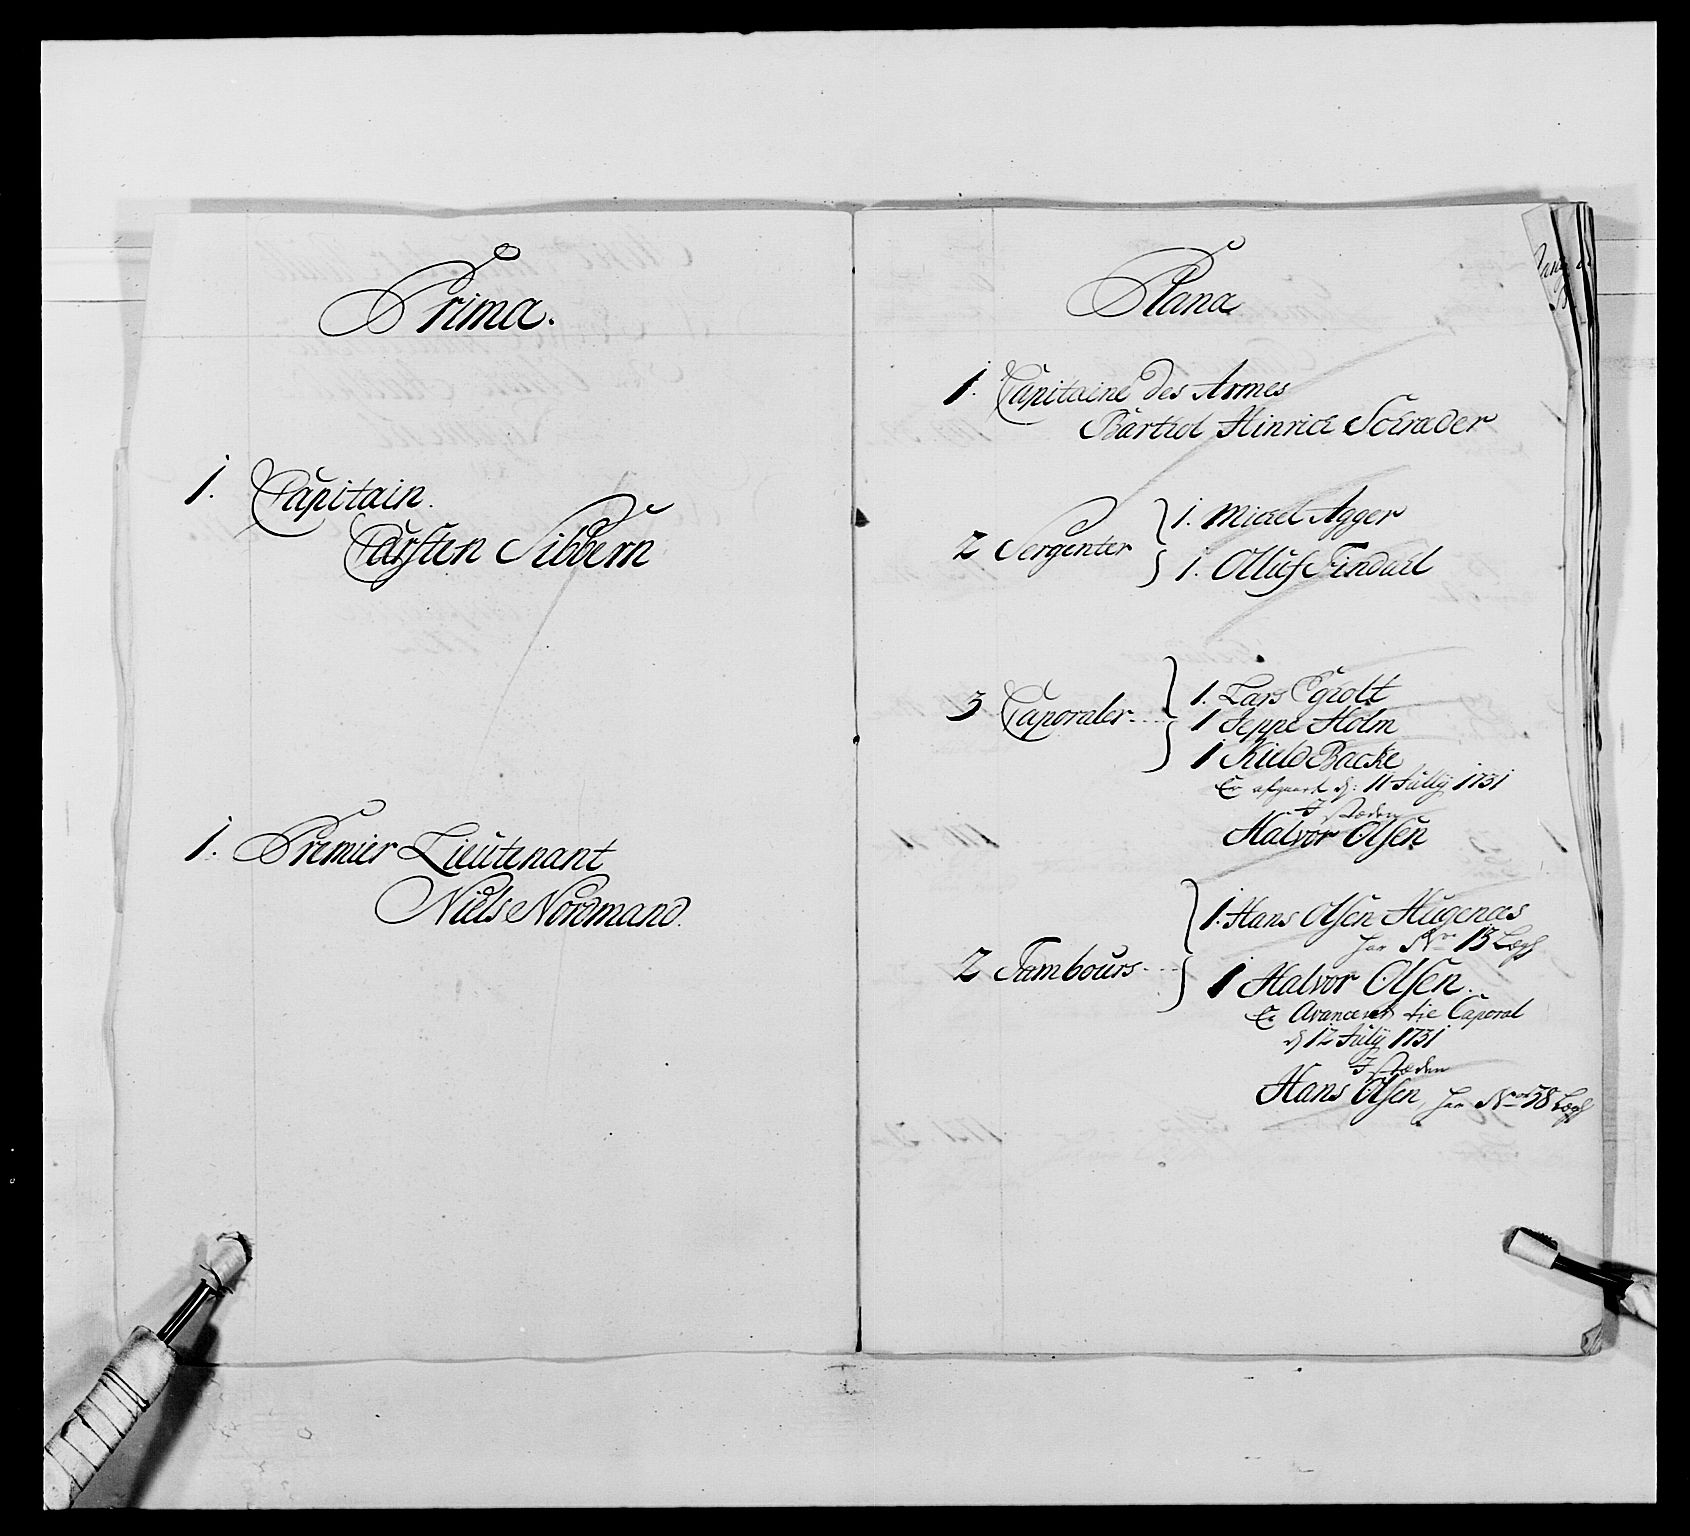 Prima.
1. Capitain.
Carsten Sibbern
1. Premier Lieutenant
Niels Nordmand.
Plana
1. Capitaine des Armes
Barthol Hinrich Schrader
2 Sergenter
1. Michel Agger
1. Olluf Findahl
3 Caporaler
1. Lars Egrott
1 Jeppe Holm
1 Kield Backe
Er afgaaet d: 11 Jully 1731
I Stæden
Halvor Olsen
2 Tambours
1. Hans Olsen Hugenæs
har No 13 Lægh
1 Halvor Olsen.
Er Avanceret til Caporal
d 12 July 1731
I Stæden
Hans Olsen, har No 38 Lægh